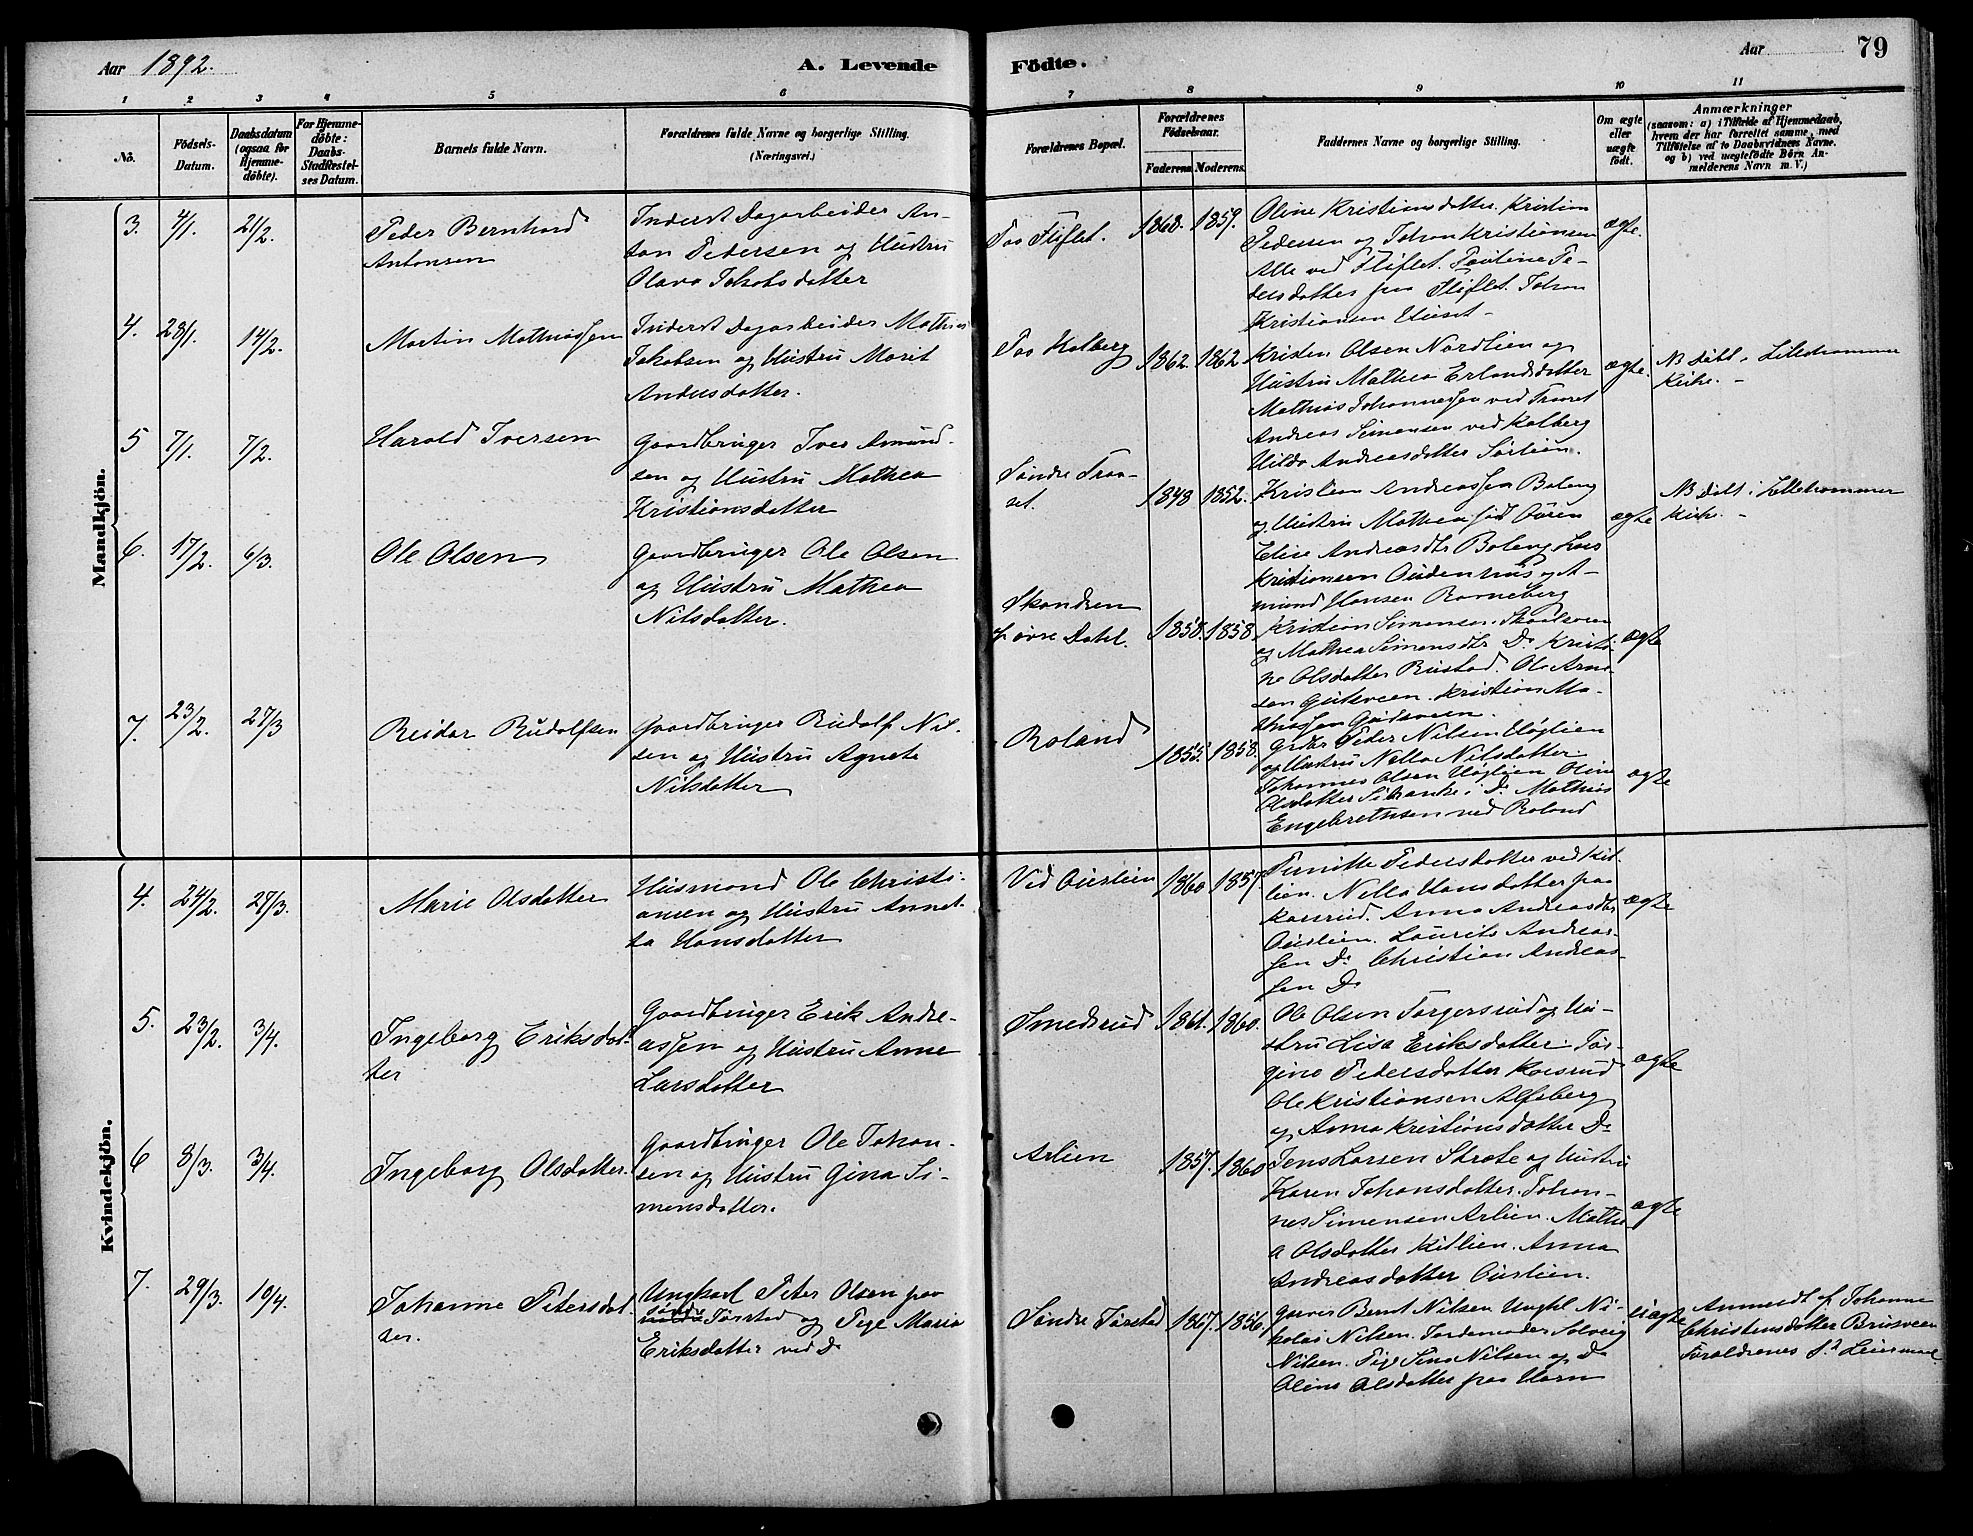 Aar 1892.
A. Levende
Födte.
Aar
79
1
2
3
4
5
6
7
8
9
10
11
No.
Födsels-
Datum.
Daabsdatum
(ogsaa for
Hjemme-
döbte).
For Hjemme-
döbte:
Daabs-
Stadfæstel-
ses Datum.
Barnets fulde Navn.
Forældrenes fulde Navne og borgerlige Stilling.
(Næringsvei.)
Forældrenes Bopæl.
Forældrenes
Födselsaar.
Faderens.
Moderens.
Faddernes Navne og borgerlige Stilling.
Om ægte
eller
uægte
födt.
Anmærkninger
(saasom: a) i Tilfælde af Hjemmedaab,
hvem der har forrettet samme, med
Tilföielse af to Daabsvidners Navne.
og b) ved uægtefödte Börn An-
melderens Navn m. V.)
Mandkjön.
3.
4/1.
21/2.
Peder Bernhard
Antonsen
Inderst Dagarbeider An-
ton Pedersen og Hustru
Olava Jakobsdatter
Paa Fliflet.
1868.
1859.
Oline Kristiansdatter. Kristian
Pedersen og Johan Kristiansen
Alle ved Fliflet. Pauline Pe-
dersdatter paa Fliflet. Johan
Kristiansen
ægte.
4.
28/1.
14/2.
Martin Mathiassen
Inderst Dagarbeider Mathias
Jakobsen og Hustru Marit
Andersdatter.
Paa Kolberg
1862.
1862
Kristen Olsen Nordlien og
Hustru Mathea Erlandsdatter
Mathias Johannessen ved Traaset
Andreas Simensen ved Kolberg
Hilda Andreasdatter Sørlien.
ægte.
NB døbt i Lillehammer
Kirke. -
5
7/1.
7/2.
Harald Iversen
Gaardbruger Iver Amund-
sen og Hustru Mathea
Kristiansdatter
Søndre Traa-
set.
1848
1852.
Kristian Andreassen Boleng
og Hustru Mathea
Elise Andreasdtr Boleng Lars
Kristiansen og A-
mund Hansen Borneberg
ægte
NB døbt i Lillehammer
Kirke. -
6.
17/2.
6/3.
Ole Olsen
Gaardbruger Ole Olsen
og Hustru Mathea
Nilsdatter.
Skandsen
af øvre Dahl.
1858.
1858.
Kristian Simensen
og Mathea Simensdtr Do. Kristi-
ne Olsdatter Rustad. Ole Arne-
sen Kristian Ma-
thiassen
ægte
7.
23/2.
27/3
Reidar Rudolfsen
Gaardbruger Rudolf Nil-
sen og Hustru Agnete
Nilsdatter
Roland
1855.
1858.
Grdbr Peder Nilsen Høglien
og Hustru Nella Nilsdatter.
Johannes Olsen Høglien Oline
Olsdatter i Do. Mathias
Engebrethsen ved Roland
ægte
Kvindekjön.
4.
24/2.
27/3.
Marie Olsdatter
Husmand Ole Christi-
ansen og Hustru Annet-
ta Hansdatter
Ved Austlien
1860
1857.
Pernille Pedersdatter ved Kit-
lien. Nella Hansdatter paa
Korsrud. Anna Andreasdtr
Austlien. Laurits Andreas-
sen Do Christian Andreas-
sen Do
ægte
5.
23/2.
3/4.
Ingeborg Eriksdat-
ter
Gaardbruger Erik Andre-
assen og Hustru Anne
Larsdatter
Smedsrud
1861.
1860.
Ole Olsen Torgersrud og Hu-
stru Lisa Eriksdatter. Tor-
gine Pedersdatter Korsrud
Ole Kristiansen Alfsberg
og Anna Kristiansdatter Do
ægte
6
8/3.
3/4.
Ingeborg Olsdatter.
Gaardbruger Ole Johan-
sen og Hustru Gina Si-
mensdatter.
Arlien
1857.
1860
Jens Larsen Strøte og Hustru
Karen Johansdatter. Johan-
nes Simensen Arlien. Mathe-
a Olsdatter Kitlien. Anna
Andreasdatter Austlien.
ægte
7.
29/3.
10/4.
Johanne Petersdat-
ter.
Ungkarl Peter Olsen paa
søndre Jørstad og Pige Maria
Eriksdatter ved Do
Søndre Jørstad
1867.
1856.
Bernt Nilsen Ungkl Ni-
kolai Nilsen. Jordemoder Solveig
Nilsen. Pige Nilsen og Do
Oline Olsdatter paa Horn
uægte
Anmeldt af Johanne
Christensdatter
Forældrenes 1ste Leiermaal